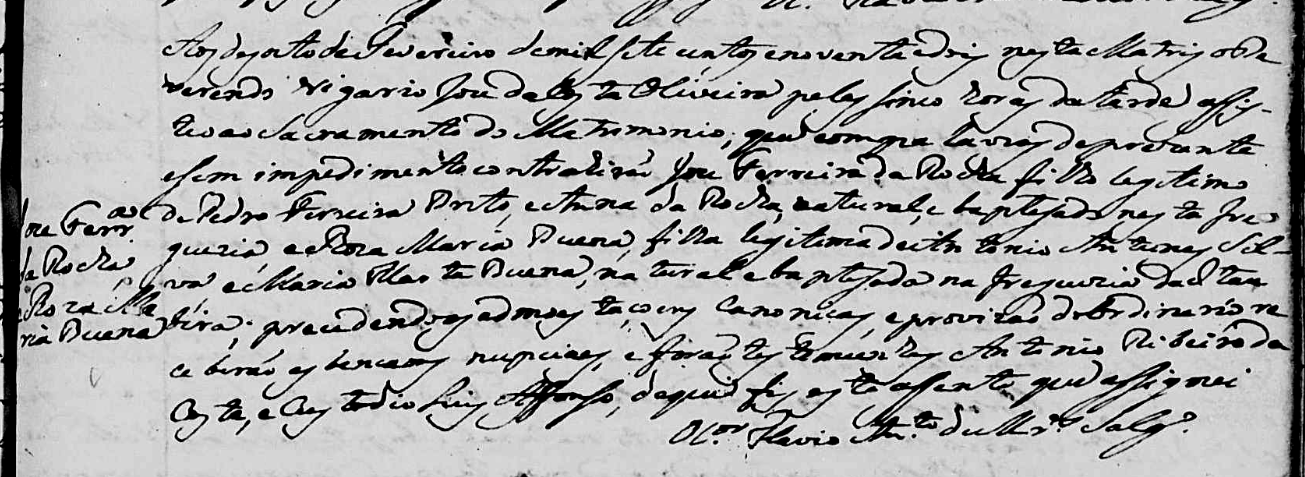 Aos dezoito de Fevereiro de mil sete centos e noventa e dois nesta Matris o Re
verendo Vigario Joze da Costa Oliveira pelas sinco horas da tarde assis-
tio ao Sacramento do Matrimonio, que com palavras de prezente
e sem impedimento contrahirão Joze Ferreira da Rocha filho legitimo
de Pedro Ferreira Brito, e Anna da Rocha, natural, e baptizado nesta Fre
guezia, e Roza Maria Buena, filha legitima de Antonio Antunes Sil-
va e Maria Buena, natural e baptizada na freguezia da
precedendo as admoestaçoens canonicas, e provizão do Ordinario re
ceberão as bençaons nupciaes, e forão testemunhas Antonio Ribeiro da
Costa, e Custodio Luis Affonso, de que fis este assento que assignei
Flavio An.to de
Joze Ferr.a
da Rocha
e Roza Ma
ria Buena